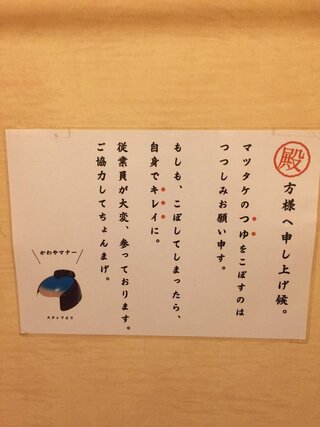 殿方様へ申し上げ候。
マツタケのつゆをこぼすのは
つつしみお願い申す。
もしも、こぼしてしまったら、
自身でキレイに。
従業員が大変、参っております。
ご協力してちょんまげ。
かわやマナー
スタッフより